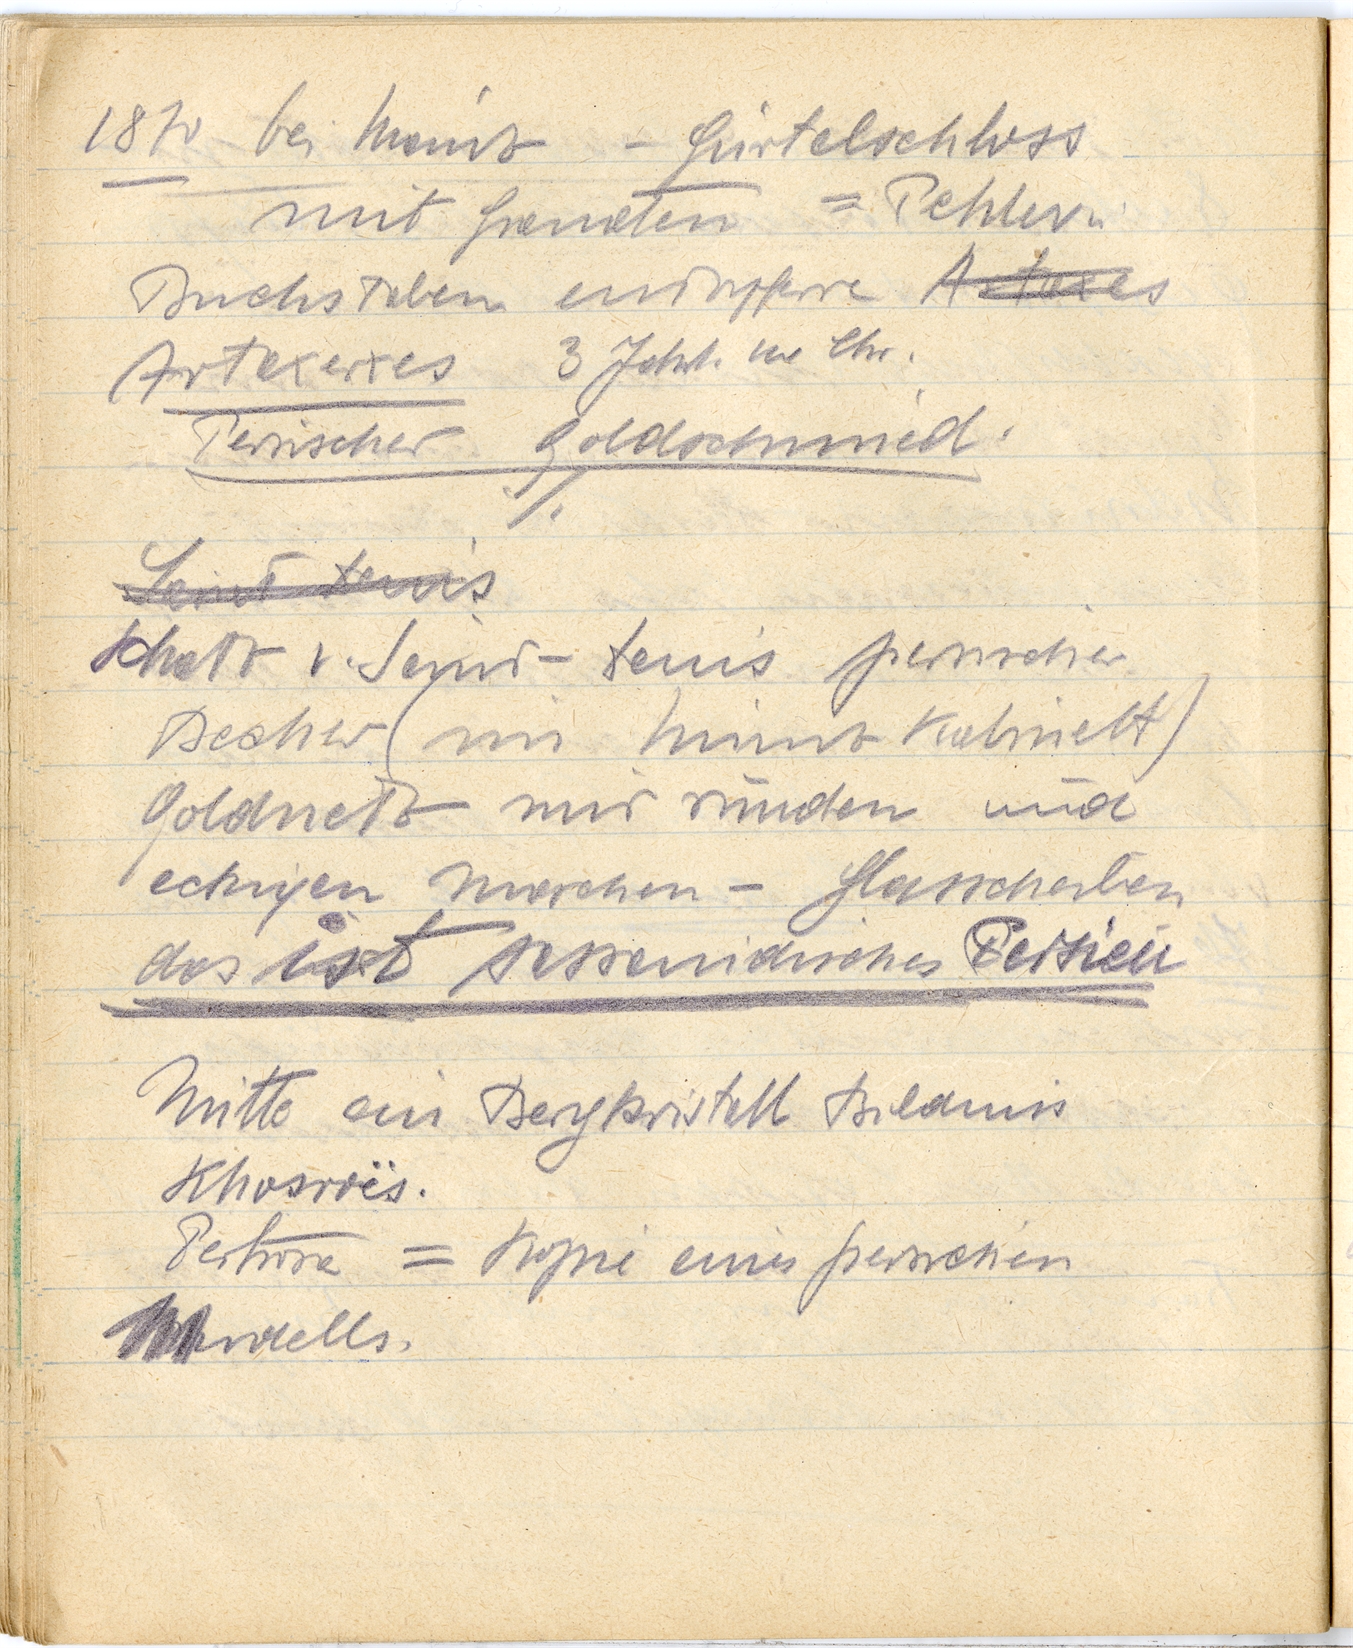 1870 bei Mainz - Gürtelschloss
mit Granaten = Pehlevi
Buchstaben
Artaxerxes 3 Jahrh. Chr.
Persischer Goldschmied.
./.
Saint Denis
Schatz v. Saint-Denis persischer
Becher (im Münz Kabinett)
Goldnetz mit runden und
eckigen Maschen - Glasscherben
das ist sassanidisches Persien
Mitte ein Bergkristall Bildnis
Khosroës.
= Kopie eines persischen
Modells.